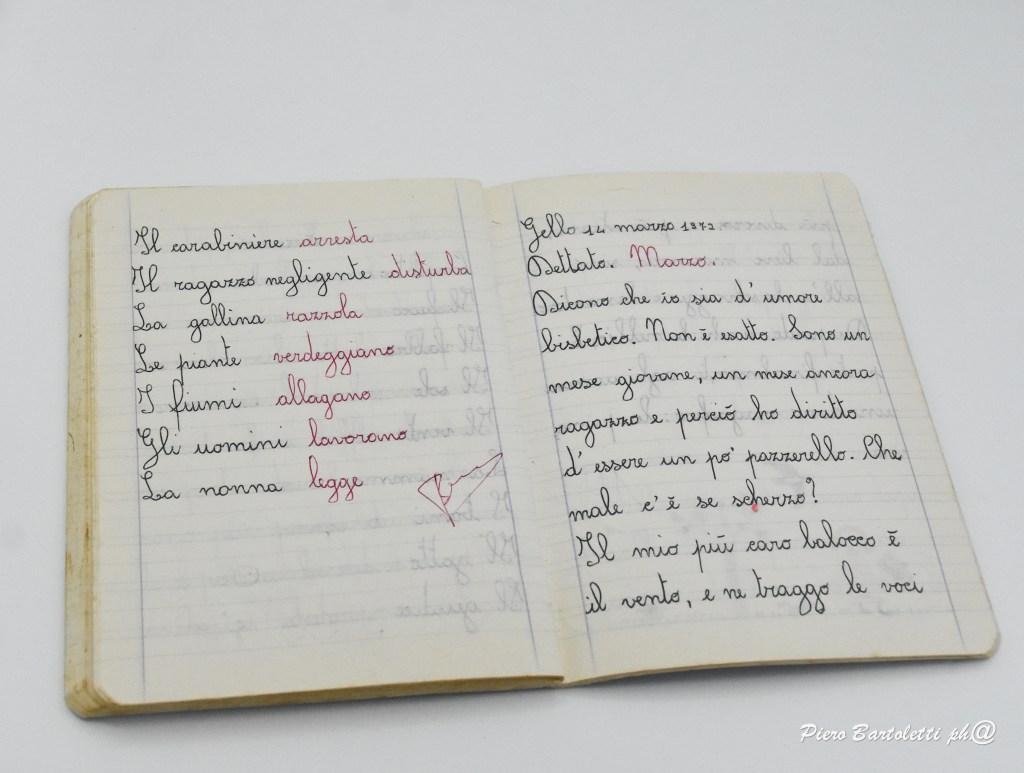 Il carabiniere arresta
Il ragazzo negligente disturba
La gallina razzola
Le piante verdeggiano
I fiumi allagano
Gli uomini lavorano
La nonna legge
Gello 14 marzo 1972
Dettato. Marzo.
Dicono che io sia d'umore
bisbetico. Non è esatto. Sono un
mese giovane, un mese ancora
ragazzo e perciò ho diritto
d'essere un po' pazzerello. Che
male c'è se scherzo?
Il mio più caro balocco è
il vento, e ne traggo le voci
Piero Bartoletti ph@